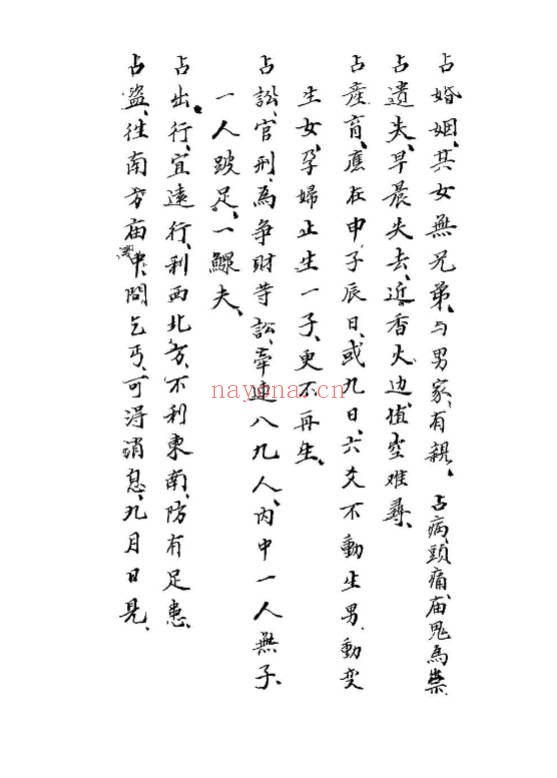 占婚姻、其女無兄弟、与男家有親、 占病、頭痛、庙鬼為祟
占遺失、早晨失去、近香火边、值空难尋、
占產育、應在申子辰日、或九日、六爻不動生男、動变
生女、孕婦止生一子、更不再生、
占訟、官刑、為爭財等訟、牽連八九人、内中一人無子、
一人跛足、一鰥夫、
占出行、宜遠行、利西北方、不利東南、防有足患、
占盜、往南方庙中、問乞丐、可得消息、九月日見、
nayona.cn